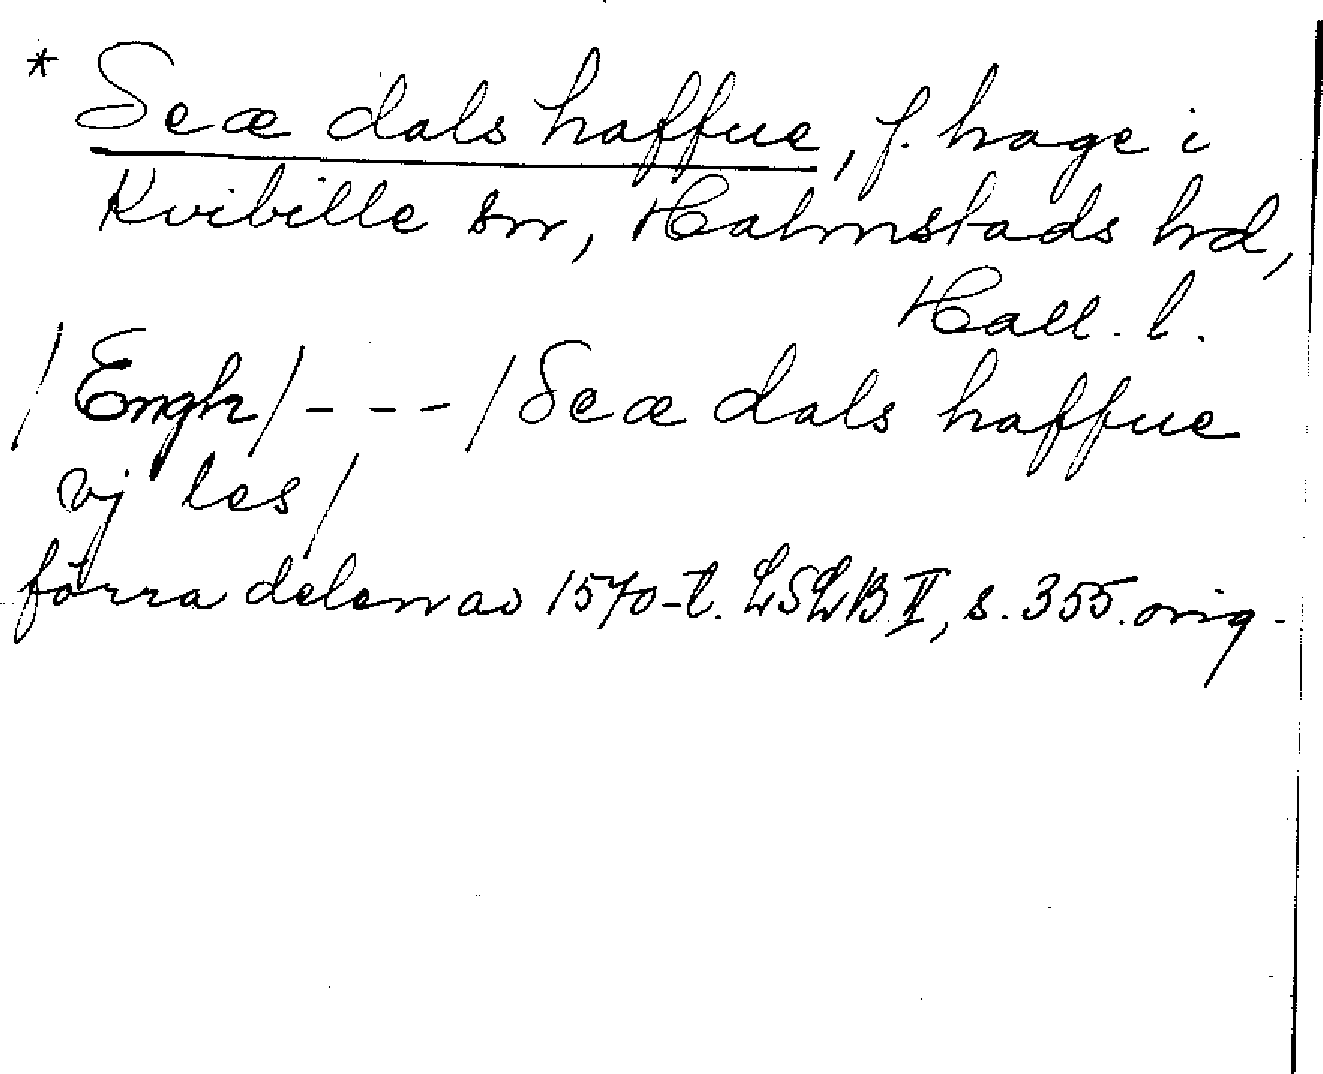 * Seæ dals haffue, f. hage i
Kvibille sn, Halmstads hd,
Hall. l.
/Engh/---/Seæ dals haffue
vj les/
förra delen av 1570-t. LSLB II, s. 355. orig.